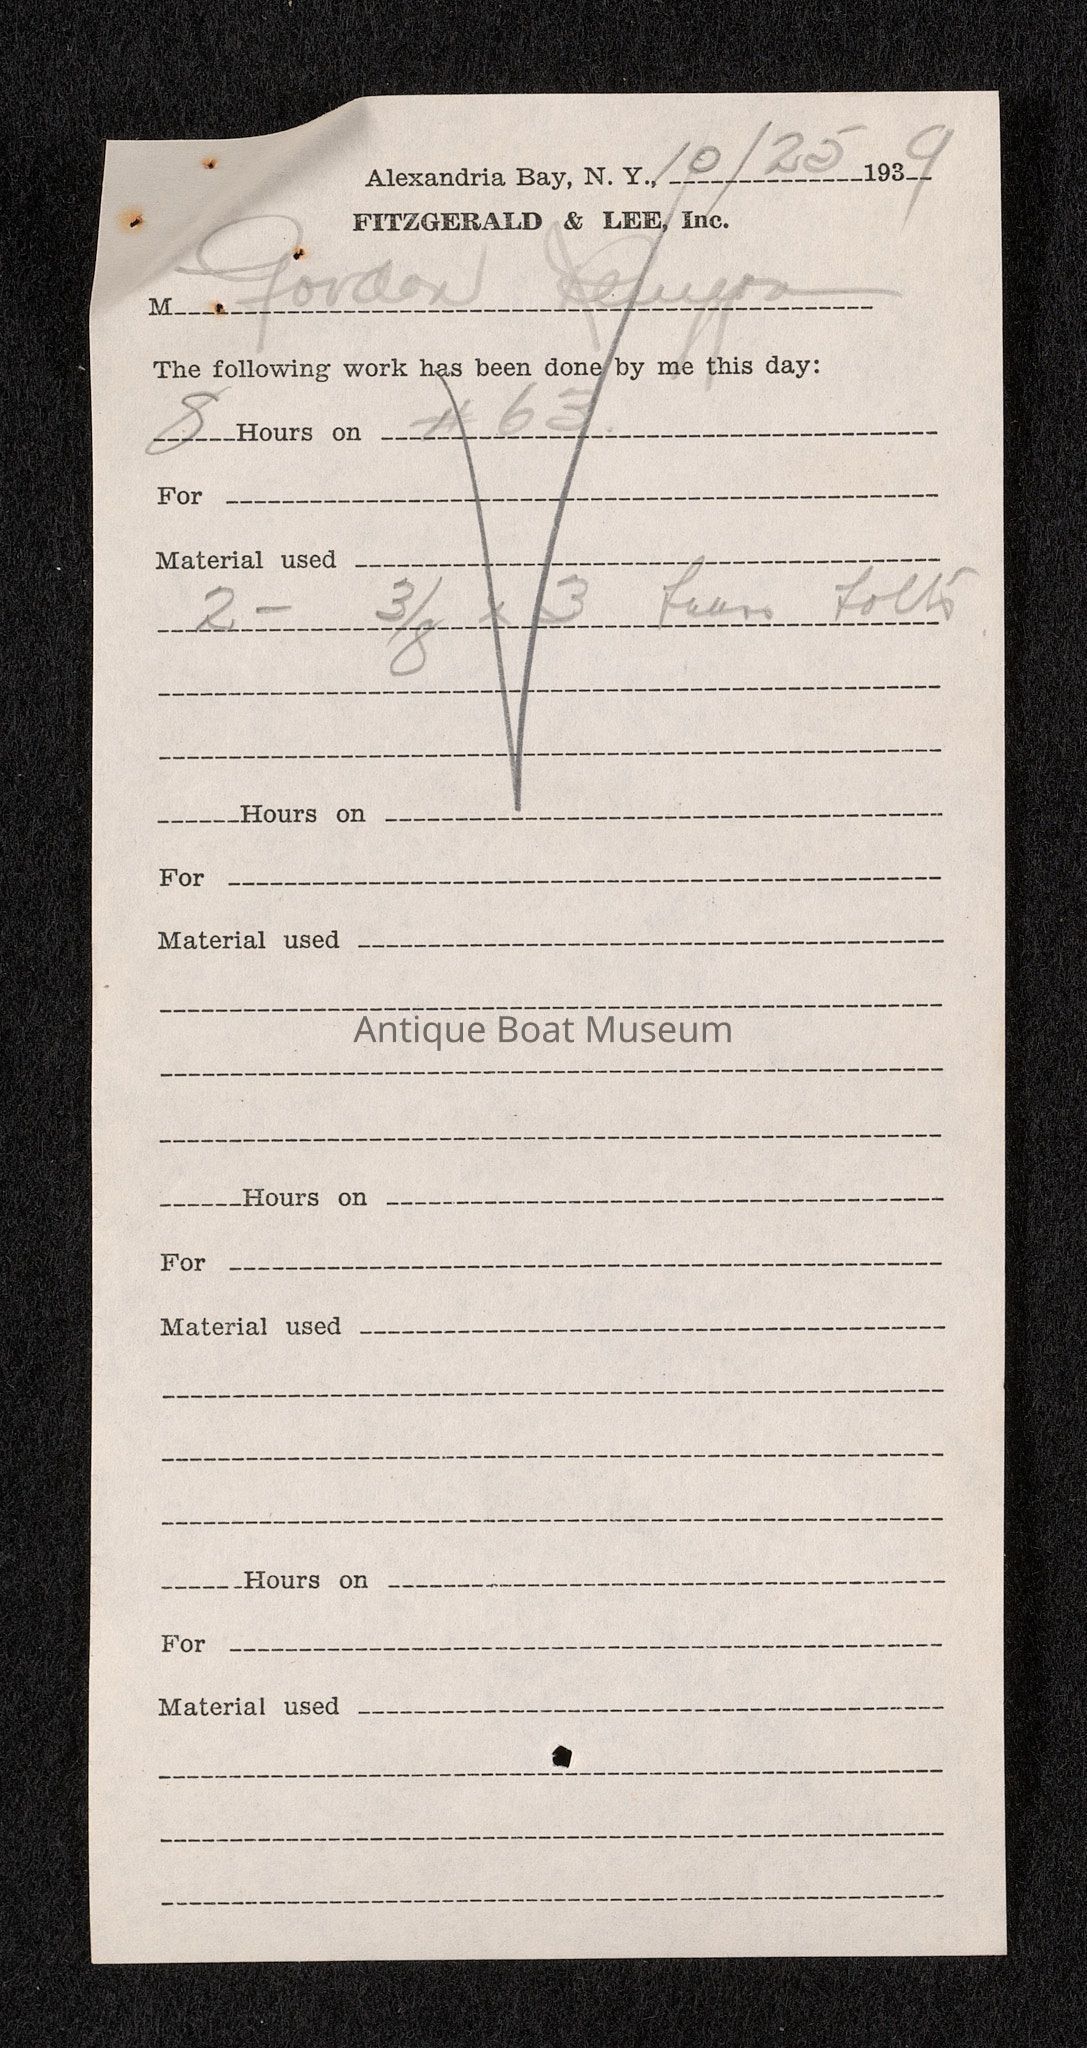 Alexandria Bay, N. Y., 10/25 1939
FITZGERALD & LEE, Inc.
M Gordon
The following work has been done by me this day:
8 Hours on # 63.
For
Material used
2 - 3/8 x 3 bolts
Hours on
For
Material used
Antique Boat Museum
Hours on
For
Material used
Hours on
For
Material used